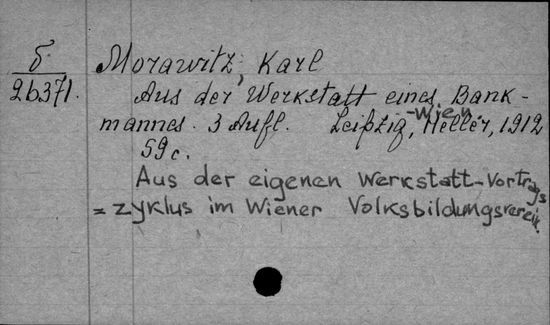 б
26371.
Morawitz, Karl
Aus der Werkstatt eines Bank-
mannes. 3 Aufl. Leipzig-Wien, Heller, 1912
59 с.
Aus der eigenen Werkstatt-Vortrags
=zyklus im Wiener Volksbildungsverein.